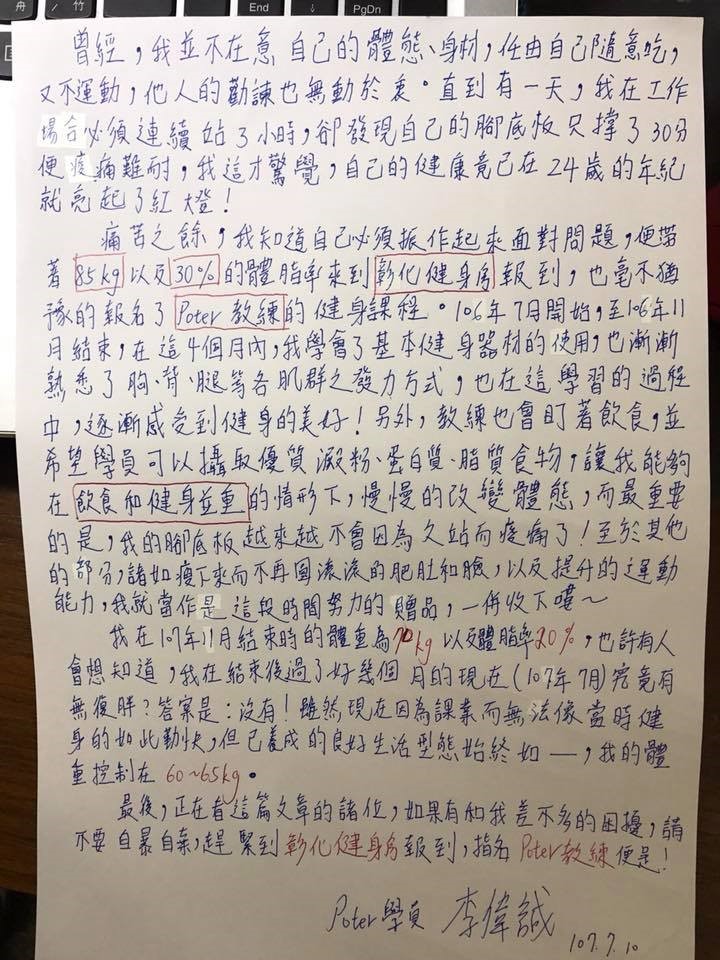 舟 ㄟ 竹 End PgDn
曾經，我並不在意自己的體態、身材，任由自己隨意吃，
又不運動，他人的勸諫也無動於衷。直到有一天，我在工作
場合必須連續站了小時，卻發現自己的腳底板只撐了30分
便痠痛難耐，我這才驚覺，自己的健康竟已在24歲的年紀
就亮起了紅燈！
痛苦之餘，我知道自己必須振作起來面對問題，便帶
著85kg以及30%的體脂率來到彰化健身房報到，也毫不猶
豫的報名了Poter教練的健身課程。106年7月開始，至106年11
月結束，在這4個月內，我學會了基本健身器材的使用，也漸漸
熟悉了胸、背、腿等各肌群之發力方式，也在這學習的過程
中，逐漸感受到健身的美好！另外，教練也會盯著飲食，並
希望學員可以攝取優質澱粉、蛋白質、脂質食物，讓我能夠
在飲食和健身並重的情形下，慢慢的改變體態，而最重要
的是，我的腳底板越來越不會因為久站而痠痛了！至於其他
的部分，諸如瘦下來而不再圓滾滾的肥肚和臉，以及提升的運動
能力，我就當作是這段時間努力的贈品，一併收下嘍～
我在107年11月結束時的體重為70kg以及體脂率20%，也許有人
會想知道，我在結束後過了好幾個月的現在(107年7月)究竟有
無復胖？答案是：沒有！雖然現在因為課業而無法像當時健
身的如此勤快，但已養成的良好生活型態始終如一，我的體
重控制在60~65kg。
最後，正在看這篇文章的諸位，如果有和我差不多的困擾，請
不要自暴自棄，趕緊到彰化健身房報到，指名Poter教練便是！
Poter學員 李偉誠
107.7.10